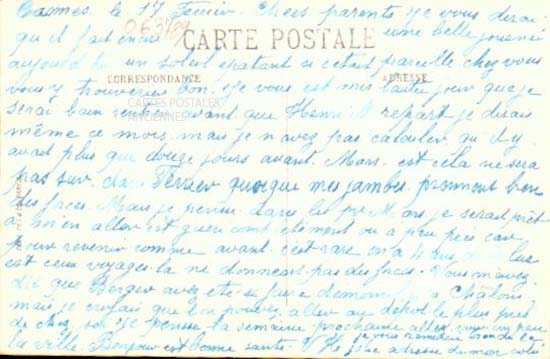 Cannes. le 17 Fevrier. Chers parents Je vous dirai
qu'il fait encore une belle journée
063189
CARTE POSTALE
aujourd'hui un soleil epatant si cetait pareille chez vous
CORRESPONDANCE
ADRESSE
vous y trouveriez bon. Je vous est mis l'autre jour que je
CARTES POSTALES
ANCIENNES
serai bien revenu avant que Henri repart je disais
même ce mois. mais je n'avez pas calculer qu'il y
avait plus que douze jours avant. Mars. est cela ne sera
pas sur. dans Fevrier quoique mes jambes. prennent bon
des forces. Mais je pense. dans les pr Mars je serait prêt
à m'en aller est guéri complètement ou a peu près car
pour revenir comme avant. c'est rare on a 4 ans de plus
est ceux voyages la ne donnent pas des forces. Vous m'avez
dit que Berger avez été se faire demonter a Châlons
mais je croyais que l'on pouvez aller au dépôt le plus près
de chez soi. Je pense la semaine prochaine allez voir un peu
la ville Bonjour est bonne santé.
je vous remettrez
adresse de mon